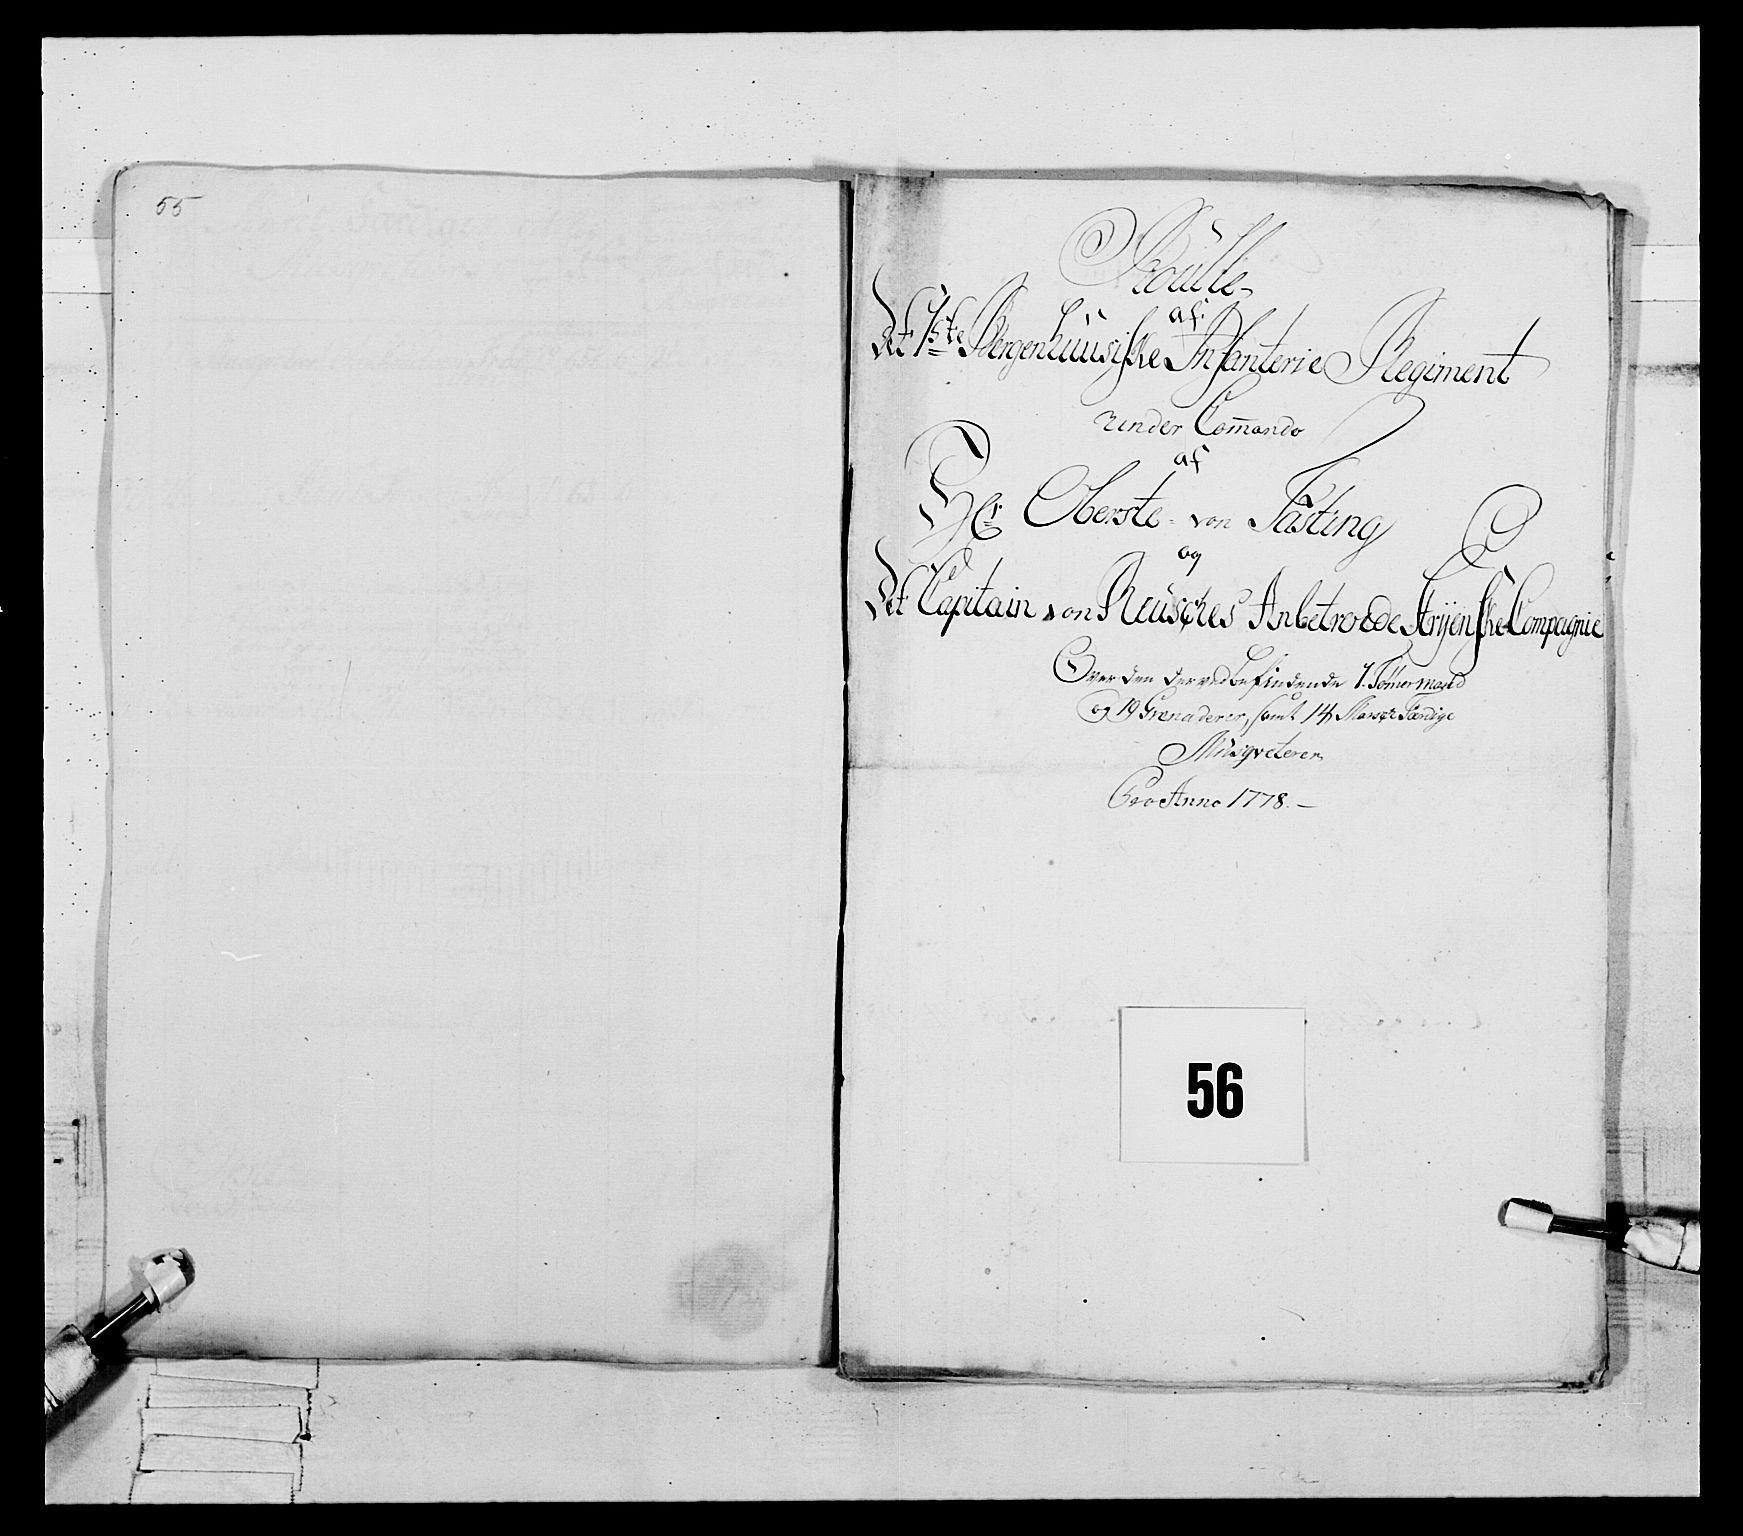 55
Roulle
af
Det 1ste Bergenhuusiske Infanterie Regiment
under Com̄ando
af
Hr. Oberste von Fasting
og
Det Capitain von Reusches Anbetroede Strijenske Compagnie
Over den derved befindende 1. Tømermand
og 19 Grenaderer, samt 14 Marsch Færdige
Musqveterer
Pro Anno 1778.
56